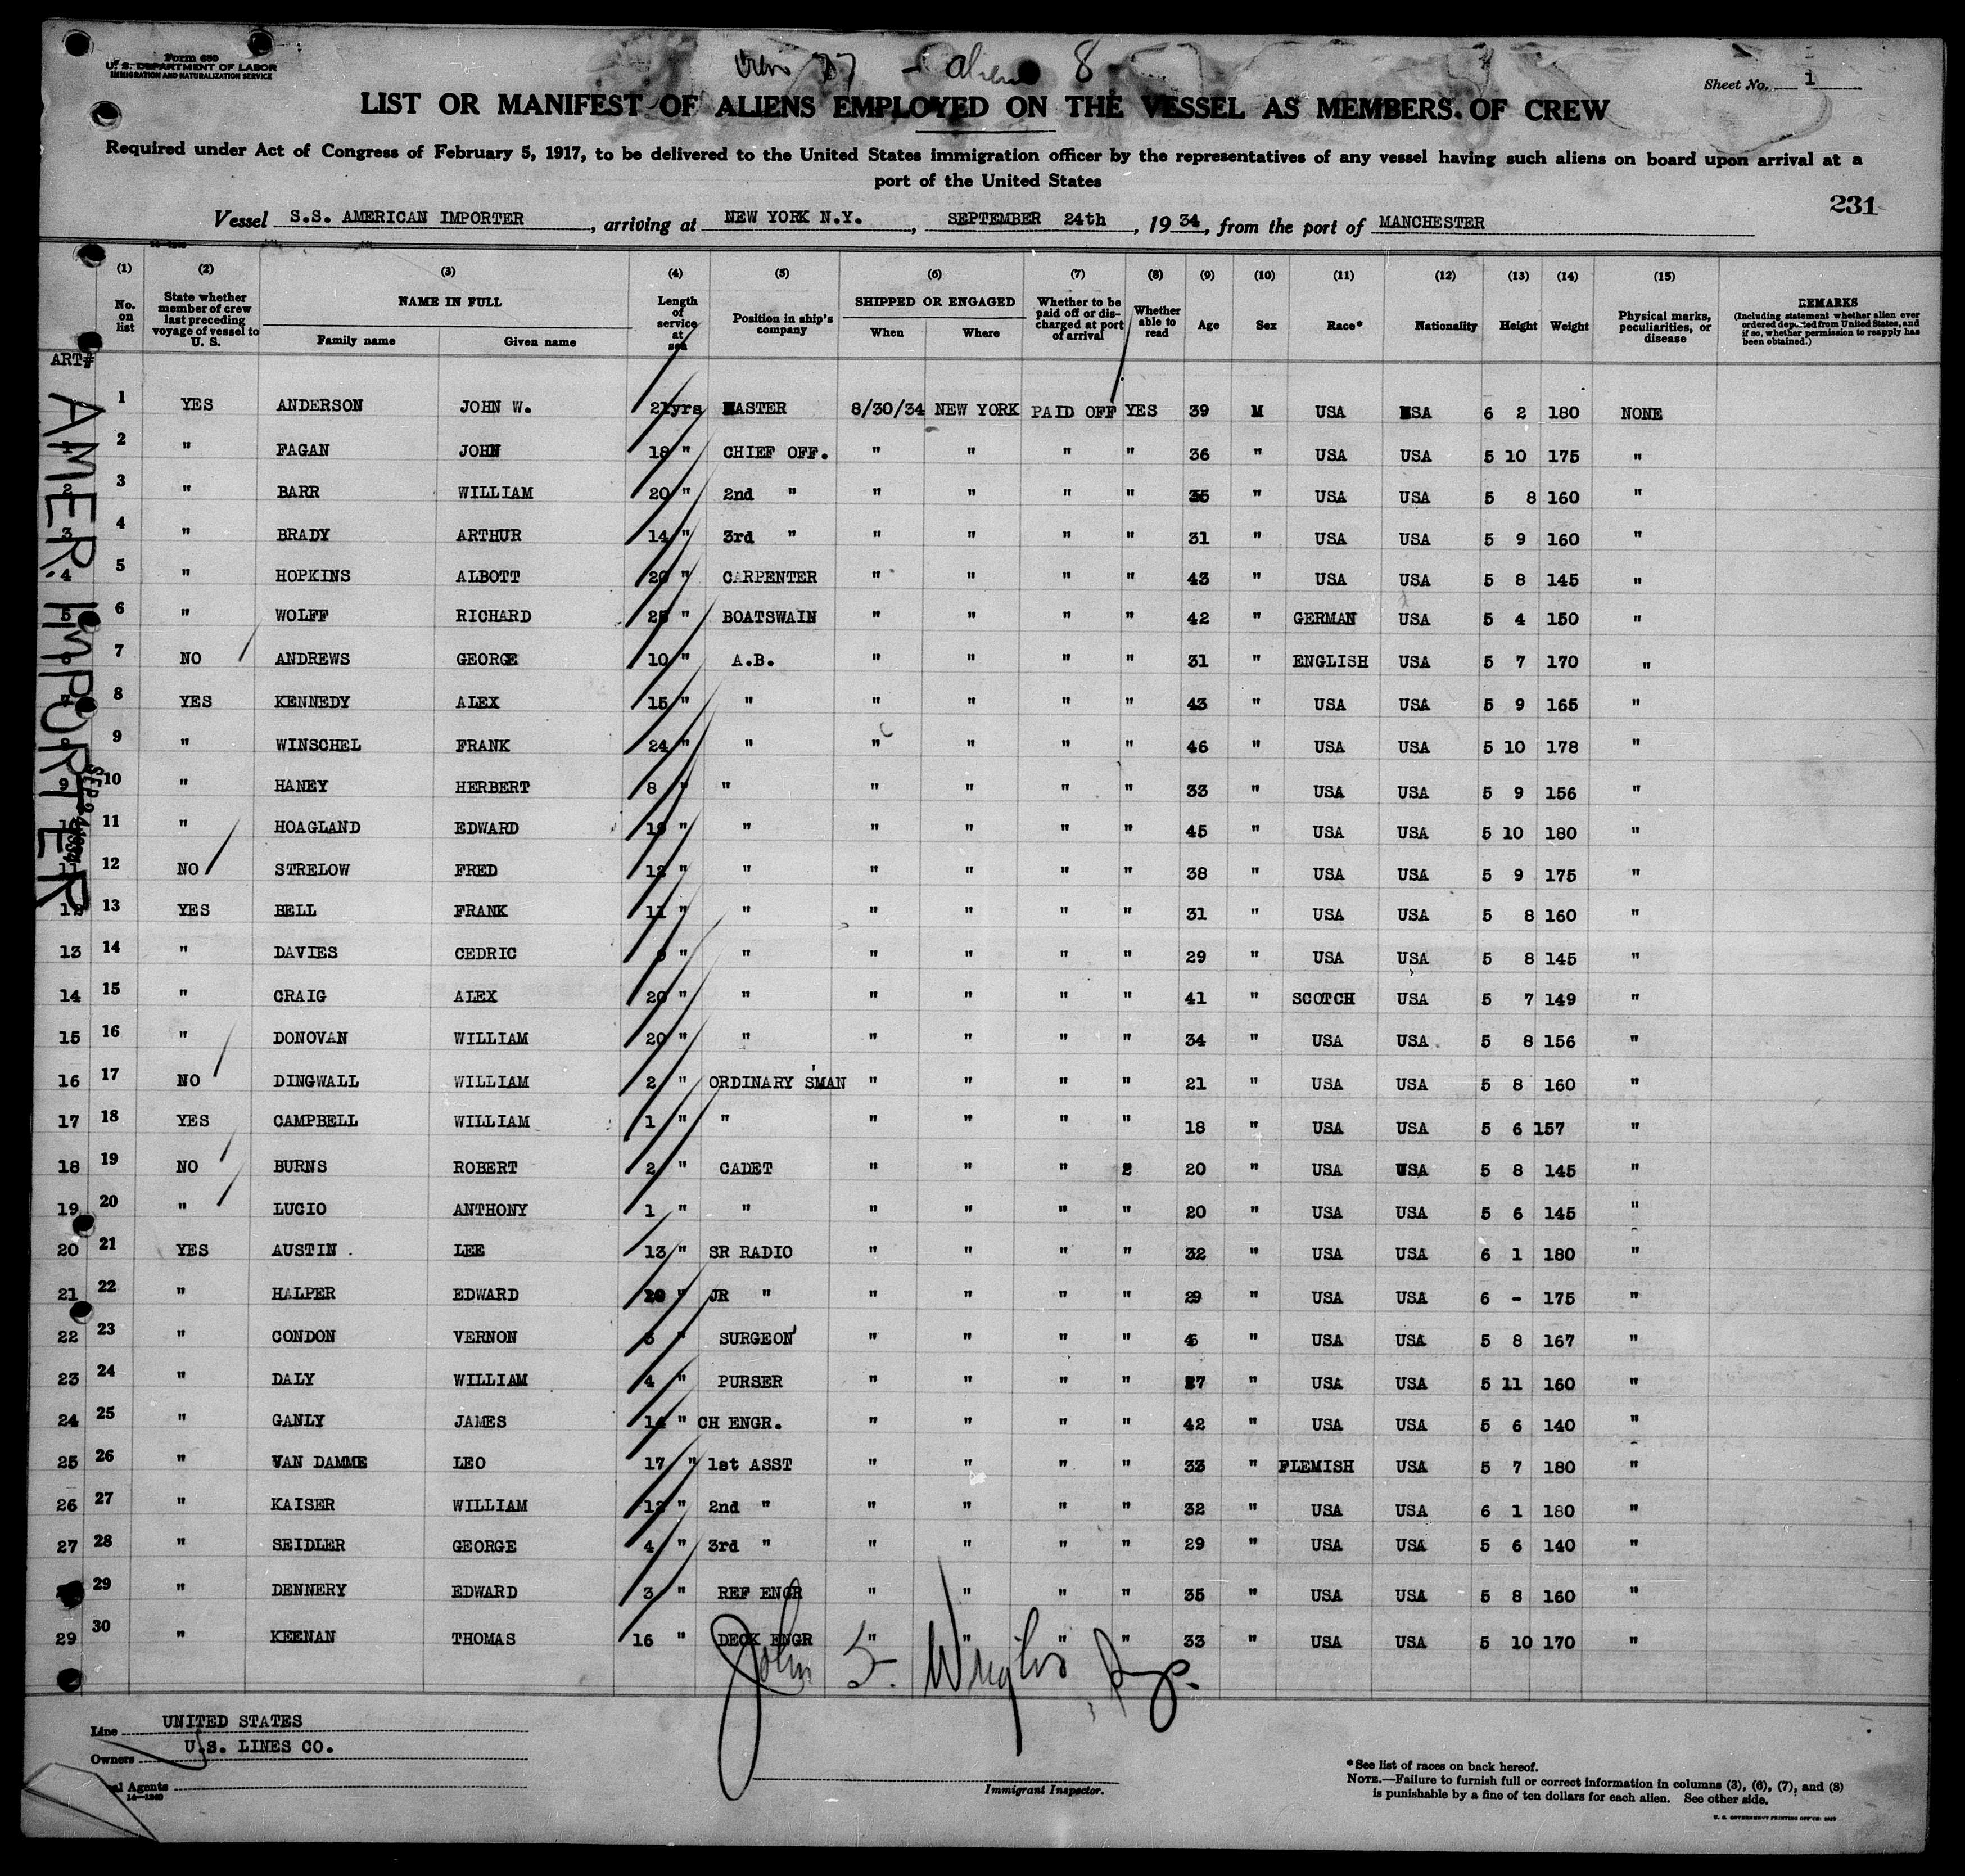 Form 680
U. S. DEPARTMENT OF LABOR
IMMIGRATION AND NATURALIZATION SERVICE
8
Sheet No. 1
LIST OR MANIFEST OF ALIENS EMPLOYED ON THE VESSEL AS MEMBERS OF CREW
Required under Act of Congress of February 5, 1917, to be delivered to the United States immigration officer by the representatives of any vessel having such aliens on board upon arrival at a
port of the United States
231
Vessel S.S. AMERICAN IMPORTER, arriving at NEW YORK N.Y., SEPTEMBER 24th, 1934, from the port of MANCHESTER
(1) (2) (3) (4) (5) (6) (7) (8) (9) (10) (11) (12) (13) (14) (15)
No. on list State whether member of crew last preceding voyage of vessel to U. S. NAME IN FULL Family name Given name Length of service at sea Position in ship's company SHIPPED OR ENGAGED When Where Whether to be paid off or discharged at port of arrival Whether able to read Age Sex Race* Nationality Height Weight Physical marks, peculiarities, or disease REMARKS (Including statement whether alien ever ordered deported from United States, and if so, whether permission to reapply has been obtained.)
ART#
AMER. IMPORTER
SEP 24 1934
1 YES ANDERSON JOHN W. 21yrs MASTER 8/30/34 NEW YORK PAID OFF YES 39 M USA USA 6 2 180 NONE
1 2 " FAGAN JOHN 18 " CHIEF OFF. " " " " 36 " USA USA 5 10 175 "
2 3 " BARR WILLIAM 20 " 2nd " " " " " 35 " USA USA 5 8 160 "
3 4 " BRADY ARTHUR 14 " 3rd " " " " " 31 " USA USA 5 9 160 "
4 5 " HOPKINS ALBOTT 20 " CARPENTER " " " " 43 " USA USA 5 8 145 "
5 6 " WOLFF RICHARD 25 " BOATSWAIN " " " " 42 " GERMAN USA 5 4 150 "
6 7 NO ANDREWS GEORGE 10 " A.B. " " " " 31 " ENGLISH USA 5 7 170 "
7 8 YES KENNEDY ALEX 15 " " " " " " 43 " USA USA 5 9 165 "
8 9 " WINSCHEL FRANK 24 " " " " " " 46 " USA USA 5 10 178 "
9 10 " HANEY HERBERT 8 " " " " " " 33 " USA USA 5 9 156 "
10 11 " HOAGLAND EDWARD 19 " " " " " " 45 " USA USA 5 10 180 "
11 12 NO STRELOW FRED 12 " " " " " " 38 " USA USA 5 9 175 "
12 13 YES BELL FRANK 11 " " " " " " 31 " USA USA 5 8 160 "
13 14 " DAVIES CEDRIC " " " " " " 29 " USA USA 5 8 145 "
14 15 " CRAIG ALEX 20 " " " " " " 41 " SCOTCH USA 5 7 149 "
15 16 " DONOVAN WILLIAM 20 " " " " " " 34 " USA USA 5 8 156 "
16 17 NO DINGWALL WILLIAM 2 " ORDINARY S'MAN " " " " 21 " USA USA 5 8 160 "
17 18 YES CAMPBELL WILLIAM 1 " " " " " " 18 " USA USA 5 6 157 "
18 19 NO BURNS ROBERT 2 " CADET " " " 20 " USA USA 5 8 145 "
19 20 " LUCIO ANTHONY 1 " " " " " " 20 " USA USA 5 6 145 "
20 21 YES AUSTIN LEE 13 " SR RADIO " " " " 32 " USA USA 6 1 180 "
21 22 " HALPER EDWARD " JR " " " " " 29 " USA USA 6 - 175 "
22 23 " CONDON VERNON " SURGEON " " " " " USA USA 5 8 167 "
23 24 " DALY WILLIAM 4 " PURSER " " " " " USA USA 5 11 160 "
24 25 " GANLY JAMES 14 " CH ENGR. " " " " 42 " USA USA 5 6 140 "
25 26 " VAN DAMME LEO 17 " 1st ASST " " " " 33 " FLEMISH USA 5 7 180 "
26 27 " KAISER WILLIAM 12 " 2nd " " " " " 32 " USA USA 6 1 180 "
27 28 " SEIDLER GEORGE 4 " 3rd " " " " " 29 " USA USA 5 6 140 "
29 " DENNERY EDWARD 3 " REF ENGR " " " " 35 " USA USA 5 8 160 "
29 30 " KEENAN THOMAS 16 " DECK ENGR " " " " 33 " USA USA 5 10 170 "
John
Line UNITED STATES
Owners U.S. LINES CO.
Agents
14—1240
Immigrant Inspector.
*See list of races on back hereof.
NOTE.—Failure to furnish full or correct information in columns (3), (6), (7), and (8)
is punishable by a fine of ten dollars for each alien. See other side.
U. S. GOVERNMENT PRINTING OFFICE